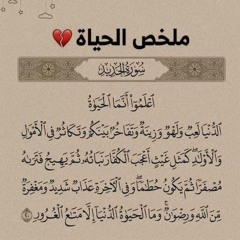 ملخص الحياة 💔
سُورَةُ الحَدِيدِ
ٱعْلَمُوٓا۟ أَنَّمَا ٱلْحَيَوٰةُ
ٱلدُّنْيَا لَعِبٌ وَلَهْوٌ وَزِينَةٌ وَتَفَاخُرٌۢ بَيْنَكُمْ وَتَكَاثُرٌ فِى ٱلْأَمْوَٰلِ
وَٱلْأَوْلَٰدِ كَمَثَلِ غَيْثٍ أَعْجَبَ ٱلْكُفَّارَ نَبَاتُهُۥ ثُمَّ يَهِيجُ فَتَرَىٰهُ
مُصْفَرًّا ثُمَّ يَكُونُ حُطَٰمًا وَفِى ٱلْءَاخِرَةِ عَذَابٌ شَدِيدٌ وَمَغْفِرَةٌ
مِّنَ ٱللَّهِ وَرِضْوَٰنٌ وَمَا ٱلْحَيَوٰةُ ٱلدُّنْيَآ إِلَّا مَتَٰعُ ٱلْغُرُورِ ٢٠